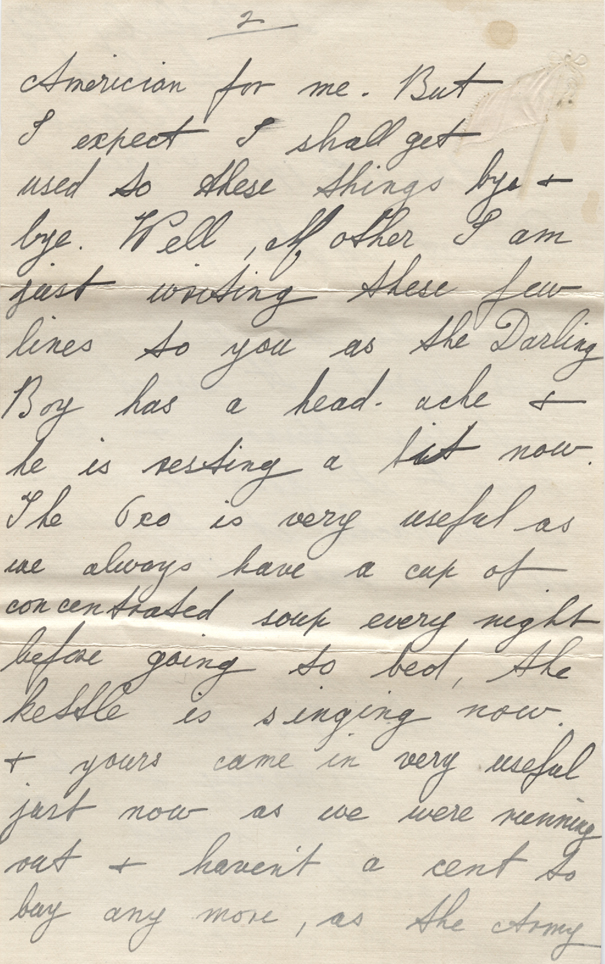 2
Americian for me. But
I expect I shall get
used to these things bye +
bye. Well, Mother I am
just writing these few
lines to you as the Darling
Boy has a head-ache +
he is resting a bit now.
The Oxo is very useful as
we always have a cup of
concentrated soup every night
before going to bed, the
kettle is singing now.
+ yours came in very useful
just now as we were running
out + haven't a cent to
buy any more, as the Army